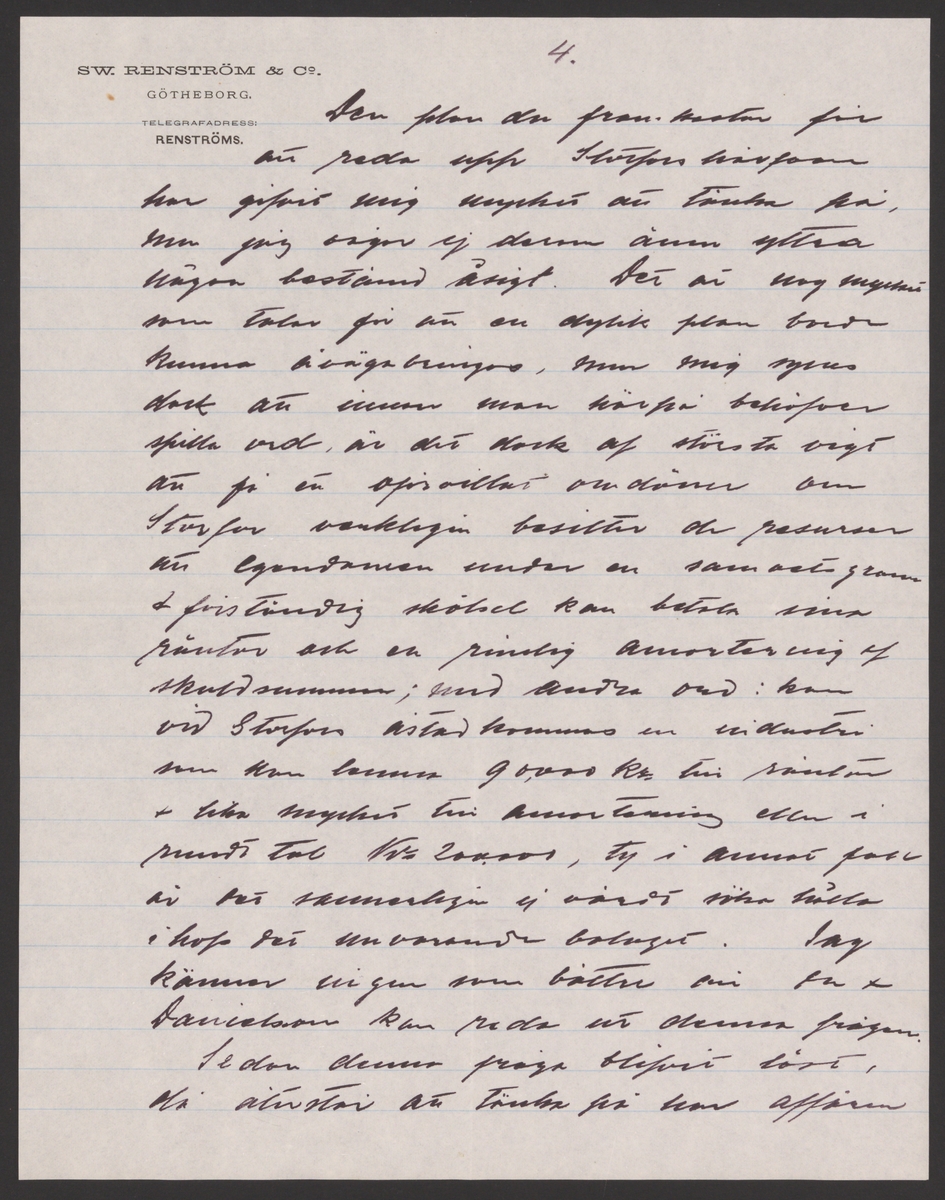 4.
SW. RENSTRÖM & Co.
GÖTHEBORG.
TELEGRAFADRESS:
RENSTRÖMS.
Den plan du fram kastar för
att reda upp Storfors härfvan
har gifvit mig mycket att tänka på,
men jag vågar ej derom ännu yttra
någon bestämd åsigt. Det är nog mycket
som talar för att en dylik plan borde
kunna åvägabringas, men mig synes
dock att innan man härpå behöfver
spilla ord, är det dock af största vigt
att få en oförvillat omdöme om
Storfors verkligen besitter de resurser
att Egendomen under en samvetsgrann
& förståndig skötsel kan betala sina
räntor och en rimlig amortering af
skuldsumman; med andra ord: kan
vid Storfors åstadkommas en industri
som kan lemna 90,000 Kr till räntor
& lika mycket till amortering eller i
rundt tal Kr 200,000, ty i annat fall
är det sannerligen ej värdt söka hålla
ihop det nuvarande bolaget. Jag
känner ingen som bättre än du &
Danielson kan reda ut denna frågan.
Sedan denna fråga blifvit löst,
då återstår att tänka på hur affären